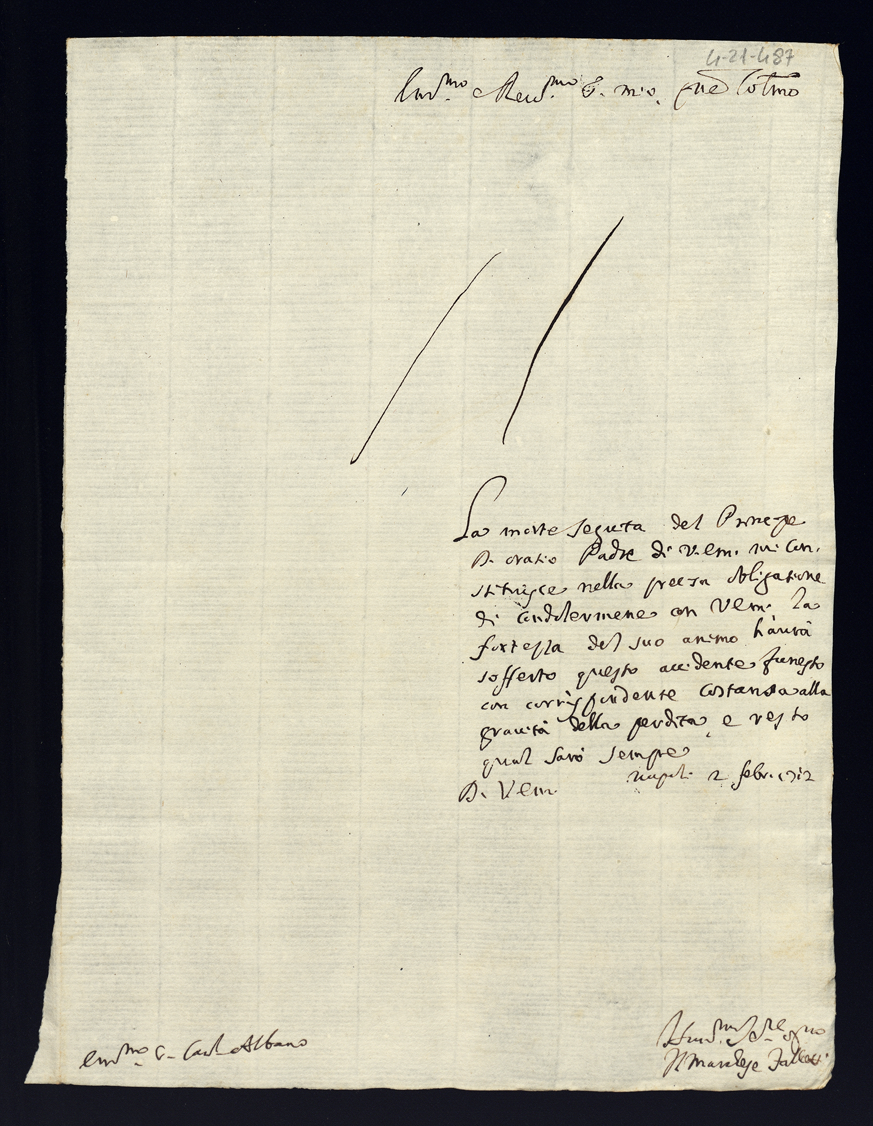 4-21-487
Em.mo e Reu.mo S. mio, pne Col.mo
La morte seguita del Prencipe
D. oratio Padre di V. em. mi con.
stituisce nella precisa obligatione
di condolermene con V em. la
fortezza del suo animo haurà
sofferto questo accidente funesto
con corrispondente costanza alla
grauità della perdita, e resto
qual sarò sempre
D. V em. Napoli 2 febr. 1712
em.mo S. Card. Albano
Il Marchese